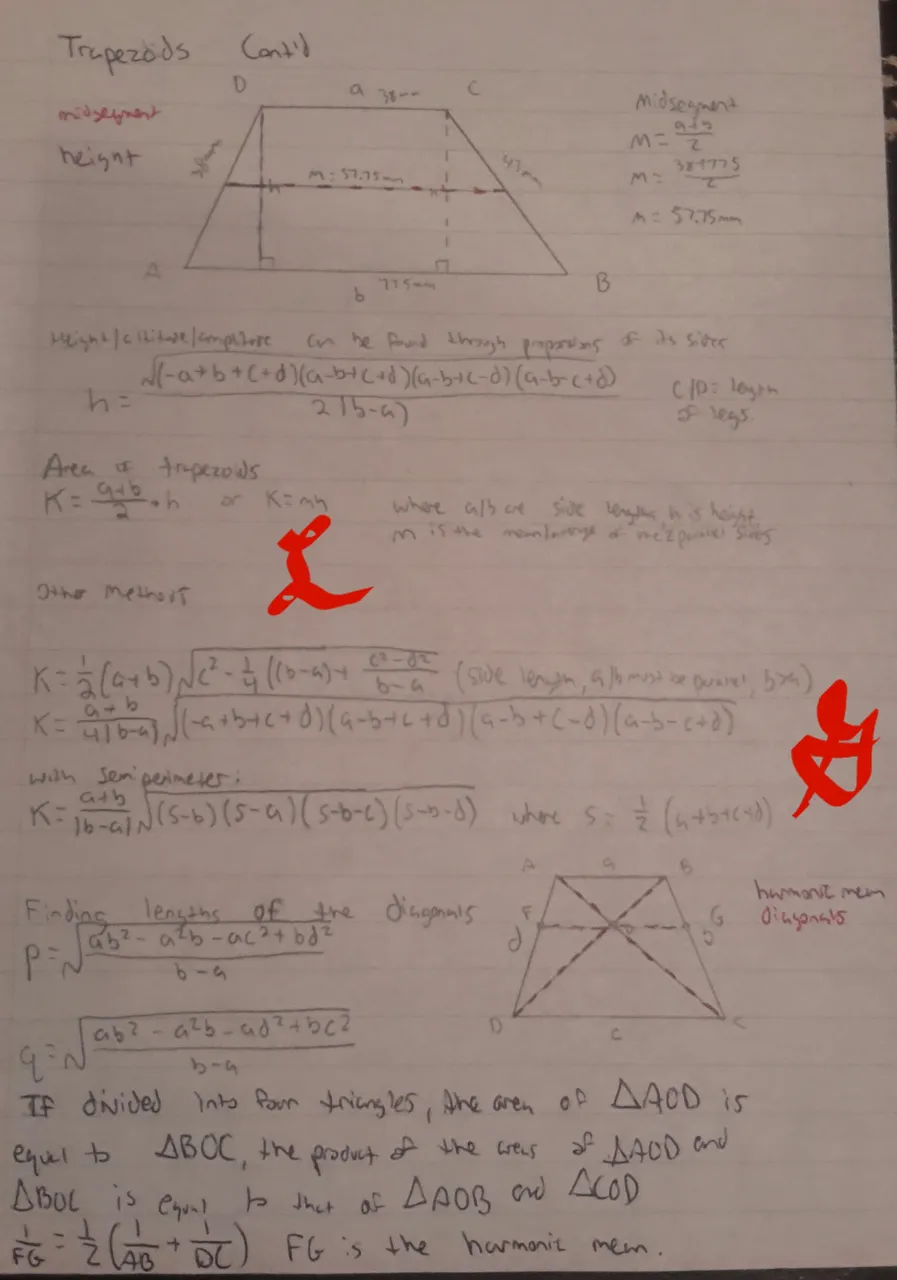 Trapezoids Cont'd
D a 38mm C
midsegment
height
38mm
47mm
m = 57.75mm
h
h
A
b 77.5mm
B
Midsegment
M = a+b/2
M = 38+77.5/2
m = 57.75mm
Height/altitude/amplitude can be found through proportions of its sides
h = √(-a+b+c+d)(a-b+c+d)(a-b+c-d)(a-b-c+d) / 2|b-a|
C/D = length
of legs.
Area of trapezoids
K = a+b/2 • h or K = mh
where a/b are side lengths h is height
m is the mean/average of the 2 parallel sides
Other Methods
K = 1/2 (a+b) √c² - 1/4 ((b-a) + c²-d²/b-a (side length, a/b must be parallel, b>a)
K = a+b/4|b-a| √(-a+b+c+d)(a-b+c+d)(a-b+c-d)(a-b-c+d)
with semiperimeter:
K = a+b/|b-a| √(s-b)(s-a)(s-b-c)(s-b-d) where s = 1/2 (a+b+c+d)
A a B
F G
d b
D c C
harmonic mean
diagonals
Finding lengths of the diagonals
p = √ab² - a²b - ac² + bd² / b-a
q = √ab² - a²b - ad² + bc² / b-a
If divided into four triangles, the area of △AOD is
equal to △BOC, the product of the areas of △AOD and
△BOC is equal to that of △AOB and △COD
1/FG = 1/2 (1/AB + 1/DC) FG is the harmonic mean.